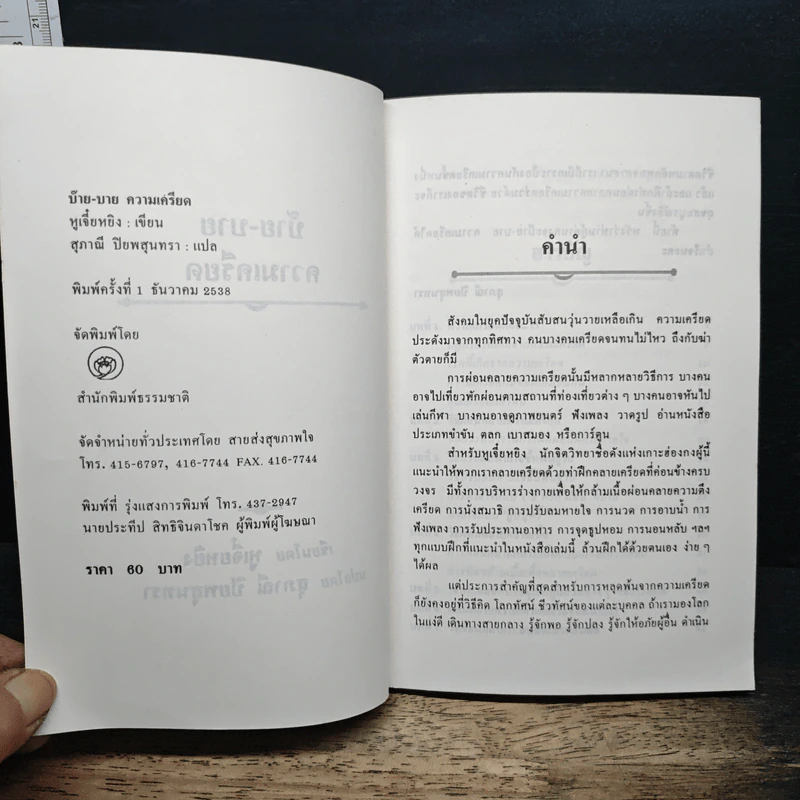 บ๊าย-บาย ความเครียด
หูเจี๋ยหยิง : เขียน
สุภาณี ปิยพสุนทรา : แปล
พิมพ์ครั้งที่ 1 ธันวาคม 2538
จัดพิมพ์โดย
สำนักพิมพ์ธรรมชาติ
จัดจำหน่ายทั่วประเทศโดย สายส่งสุขภาพใจ
โทร. 415-6797, 416-7744 FAX. 416-7744
พิมพ์ที่ รุ่งแสงการพิมพ์ โทร. 437-2947
นายประทีป สิทธิจินดาโชค ผู้พิมพ์ผู้โฆษณา
ราคา 60 บาท
คำนำ
สังคมในยุคปัจจุบันสับสนวุ่นวายเหลือเกิน ความเครียด
ประดังมาจากทุกทิศทาง คนบางคนเครียดจนทนไม่ไหว ถึงกับฆ่า
ตัวตายก็มี
การผ่อนคลายความเครียดนั้นมีหลากหลายวิธีการ บางคน
อาจไปเที่ยวพักผ่อนตามสถานที่ท่องเที่ยวต่าง ๆ บางคนอาจหันไป
เล่นกีฬา บางคนอาจดูภาพยนตร์ ฟังเพลง วาดรูป อ่านหนังสือ
ประเภทขำขัน ตลก เบาสมอง หรือการ์ตูน
สำหรับหูเจี๋ยหยิง นักจิตวิทยาชื่อดังแห่งเกาะฮ่องกงผู้นี้
แนะนำให้พวกเราคลายเครียดด้วยท่าฝึกคลายเครียดที่ค่อนข้างครบ
วงจร มีทั้งการบริหารร่างกายเพื่อให้กล้ามเนื้อผ่อนคลายความตึง
เครียด การนั่งสมาธิ การปรับลมหายใจ การนวด การอาบน้ำ การ
ฟังเพลง การรับประทานอาหาร การจุดธูปหอม การนอนหลับ ฯลฯ
ทุกแบบฝึกที่แนะนำในหนังสือเล่มนี้ ล้วนฝึกได้ด้วยตนเอง ง่าย ๆ
ได้ผล
แต่ประการสำคัญที่สุดสำหรับการหลุดพ้นจากความเครียด
ก็ยังคงอยู่ที่วิธีคิด โลกทัศน์ ชีวทัศน์ของแต่ละบุคคล ถ้าเรามองโลก
ในแง่ดี เดินทางสายกลาง รู้จักพอ รู้จักปลง รู้จักให้อภัยผู้อื่น ดำเนิน